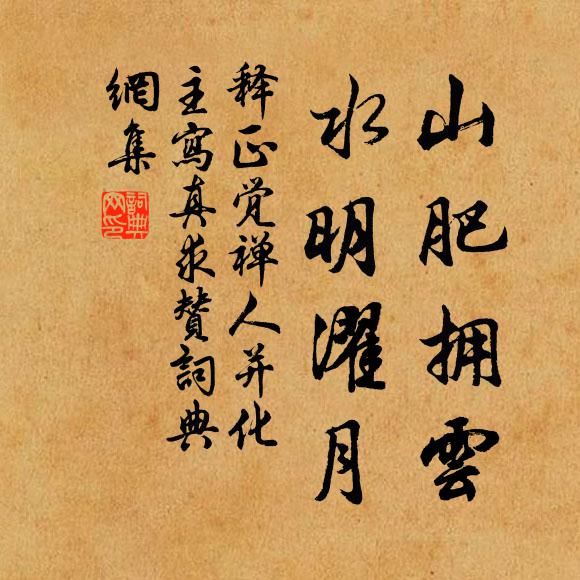 山肥拥雲
水明濯月
释正觉禅人并化
主寫真求贊詞典
網集
詞典
网印